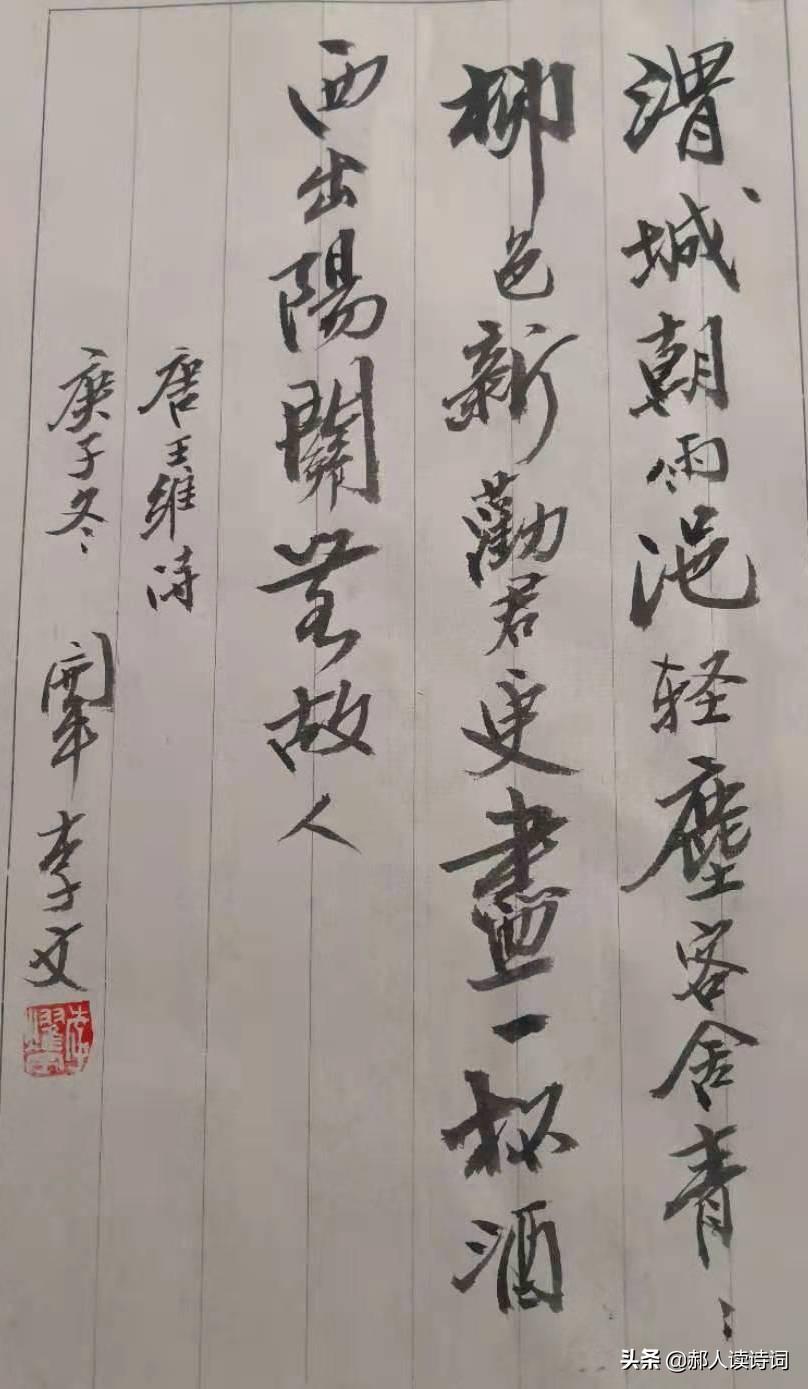 渭城朝雨浥轻塵客舍青々
柳色新勸君更盡一杯酒
西出陽關無故人
唐王維诗
庚子冬 李文
头条 @郝人读诗词